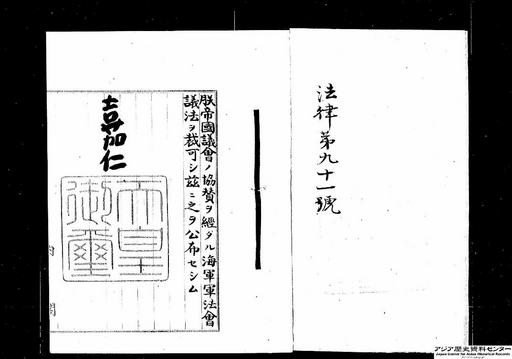 法律第九十一號
朕帝國議會ノ協贊ヲ經タル海軍軍法會
議法ヲ裁可シ茲ニ之ヲ公布セシム
嘉仁
天皇
御璽
内閣
アジア歴史資料センター
Japan Center for Asian Historical Records